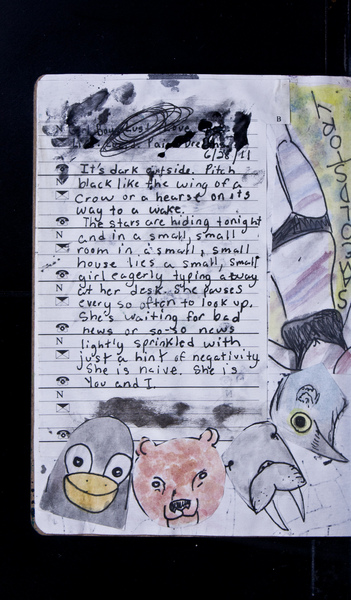 Lust Love
6/28/11
It's dark outside. Pitch
black like the wing of a
crow or a hearst on its
way to a wake.
The stars are hiding tonight
and in a small, small
room in a small, small
house lies a small, small
girl eagerly typing away
at her desk. She pauses
every so often to look up.
She's waiting for bad
news or so-so news
lightly sprinkled with
just a hint of negativity
She is naive. She is
You and I.
N
N
N
N
N
N
B